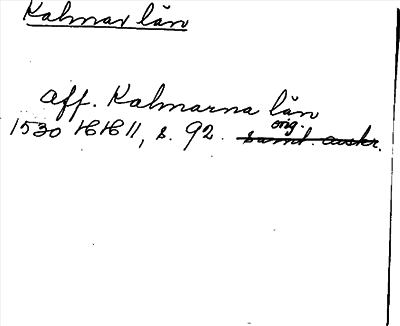 Kalmar län
Aff. Kalmarna län
1530 HH 11, s. 92. orig. samt. avskr.